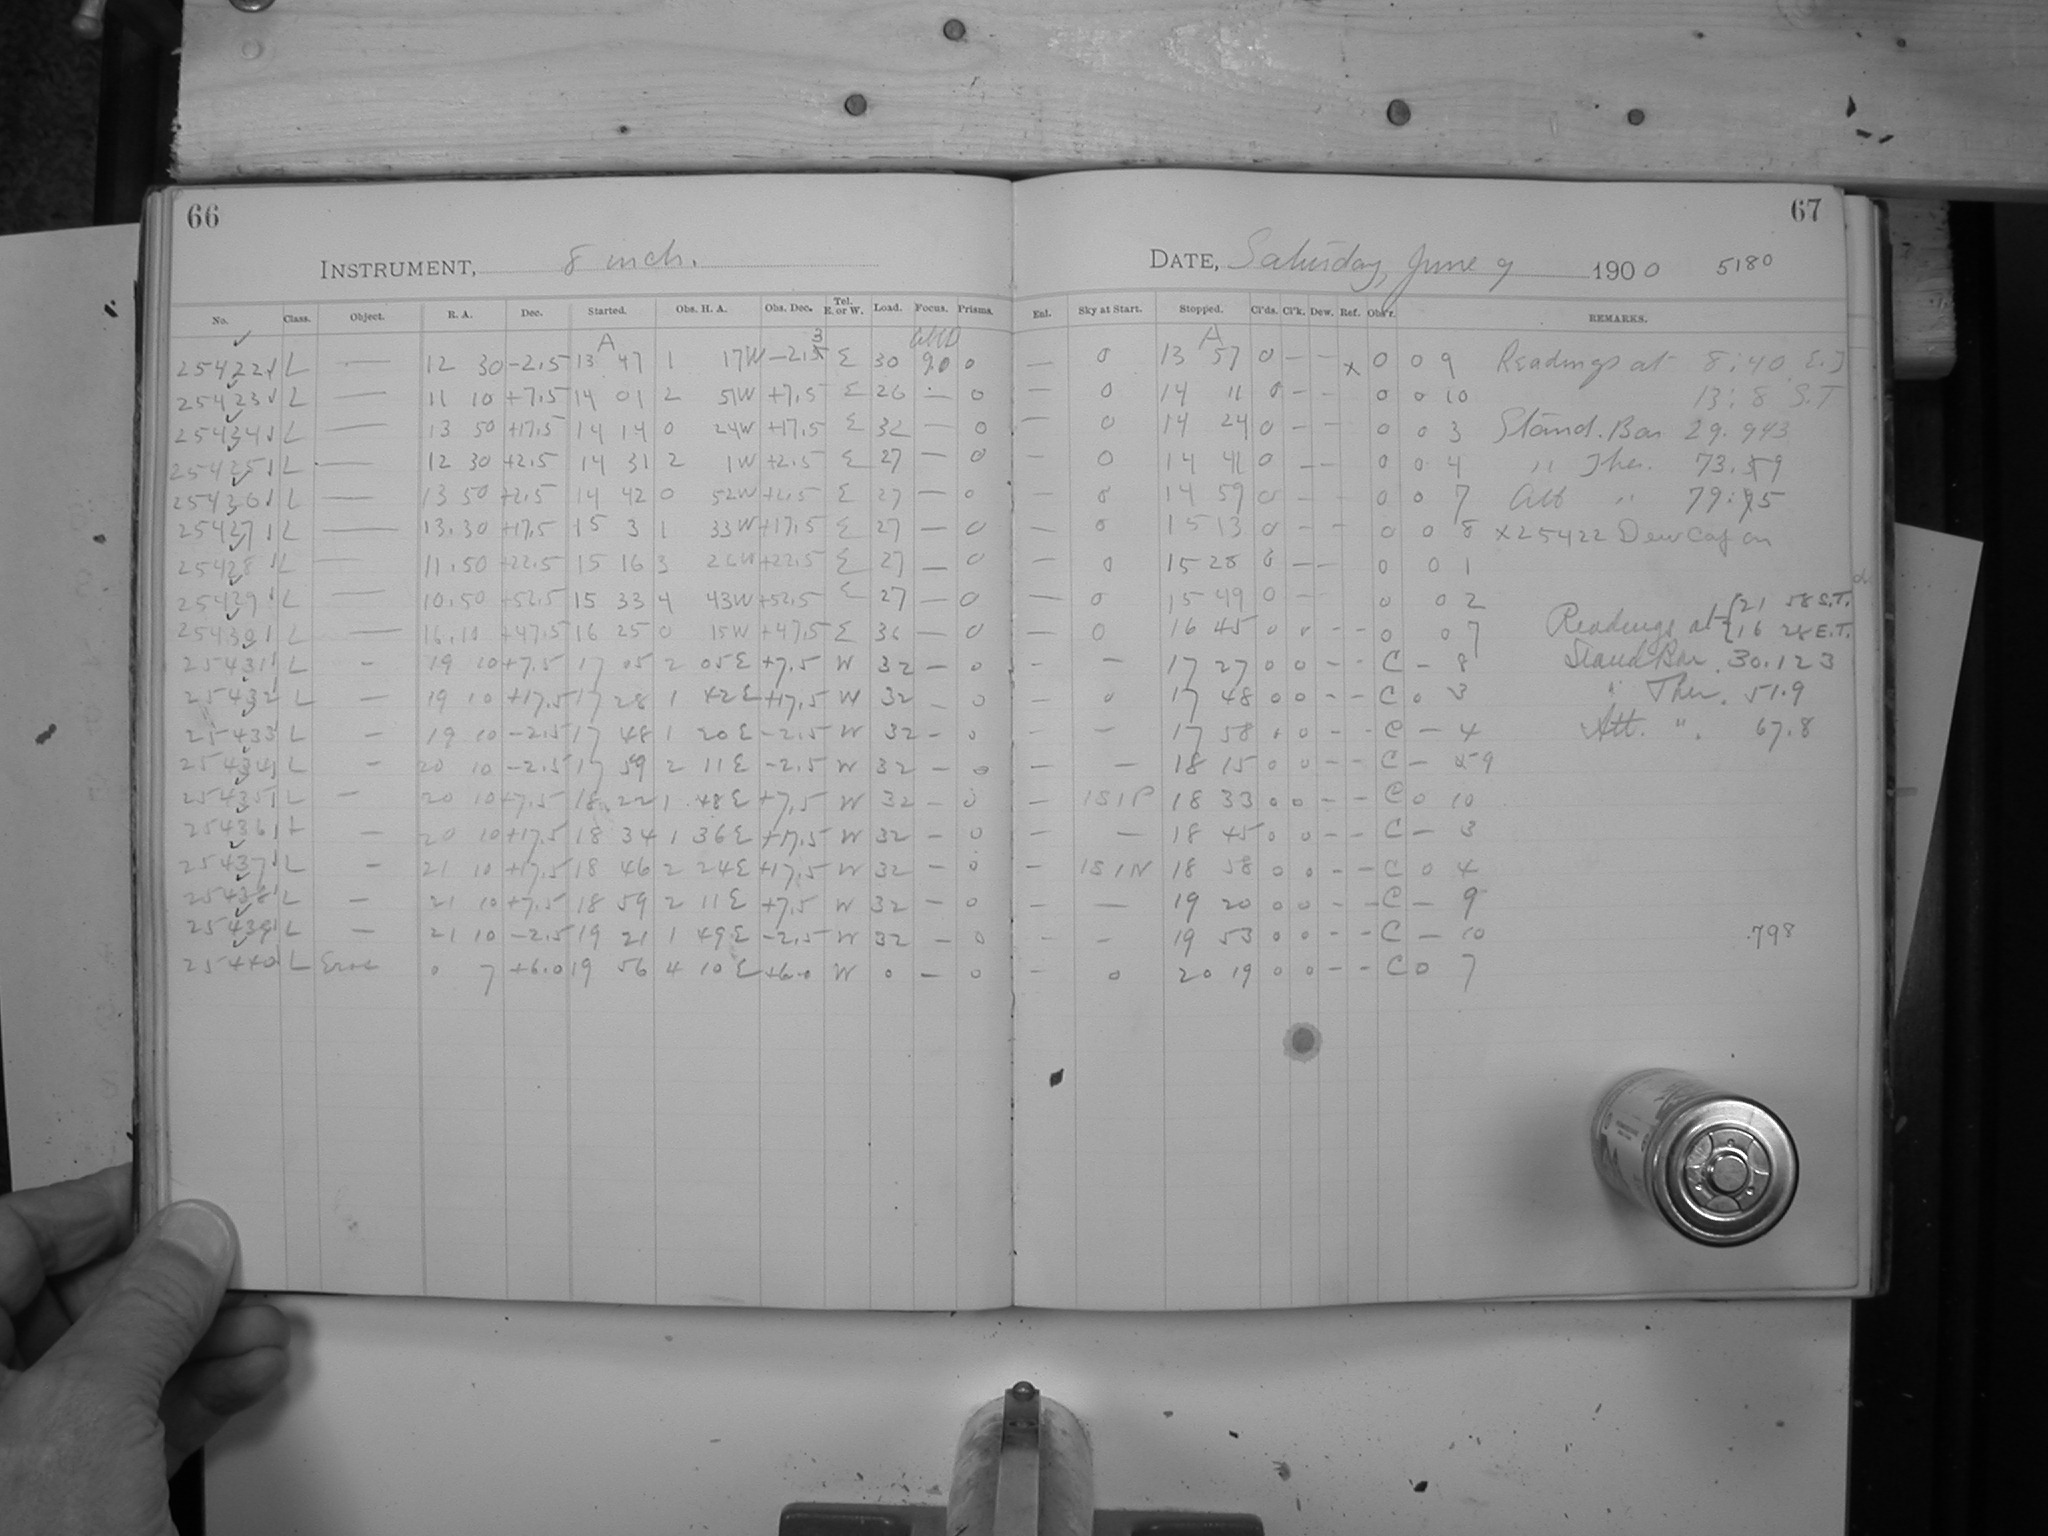 66
67
INSTRUMENT, 8 inch.
DATE, Saturday, June 9 1900 5180
No. Class. Object. R. A. Dec. Started. Obs. H. A. Obs. Dec. Tel. E. or W. Load. Focus. Prisms. Enl. Sky at Start. Stopped. Cl'ds. Cl'k. Dew. Ref. Obs'r. REMARKS.
A 3 A
25422 L — 12 30 -2.5 13 47 1 17W -2.5 E 30 9.0 0 — 0 13 57 0 - - x 0 0 9 Readings at 8:40 E.T
25423 L — 11 10 +7.5 14 01 2 51W +7.5 E 26 — 0 — 0 14 11 0 - - 0 0 10 13:8 S.T
25434 L — 13 50 +17.5 14 14 0 24W +17.5 E 32 — 0 — 0 14 24 0 - - 0 0 3 Stand. Bar 29.943
25425 L — 12 30 +2.5 14 31 2 1W +2.5 E 27 — 0 — 0 14 41 0 - - 0 0 4 " Ther. 73.59
25436 L — 13 50 +2.5 14 42 0 52W +2.5 E 27 — 0 — 0 14 59 0 - - 0 0 7 Att " 79.
25427 L — 13.30 +17.5 15 3 1 33W +17.5 E 27 — 0 — 0 15 13 0 - - 0 0 8 x25422 Dew Cap on
25428 L — 11.50 +22.5 15 16 3 26W +22.5 E 27 — 0 — 0 15 28 0 - - 0 0 1
25429 L — 10.50 +52.5 15 33 4 43W +52.5 E 27 — 0 — 0 15 49 0 0 0 2 Readings at { 21 58 S.T.
25430 L — 16.10 +47.5 16 25 0 15W +47.5 E 36 — 0 — 0 16 45 0 0 - - 0 0 7 16 28 E.T.
25431 L - 19 10 +7.5 17 05 2 05E +7.5 W 32 - 0 - - 17 27 0 0 - - C - 8 Stand Bar. 30.123
25432 L - 19 10 +17.5 17 28 1 42E +17.5 W 32 - 0 - 0 17 48 0 0 - - C 0 3 " Ther. 51.9
25433 L - 19 10 -2.5 17 48 1 20E -2.5 W 32 - 0 - - 17 58 0 0 - - C - 4 Att. ". 67.8
25434 L - 20 10 -2.5 17 59 2 11E -2.5 W 32 - 0 - - 18 15 0 0 - - C - 9
25435 L - 20 10 +7.5 18 22 1 48E +7.5 W 32 - 0 - 1S1P 18 33 0 0 - - C 0 10
25436 L - 20 10 +17.5 18 34 1 36E +17.5 W 32 - 0 - - 18 45 0 0 - - C - 3
25437 L - 21 10 +17.5 18 46 2 24E +17.5 W 32 - 0 - 1S1N 18 58 0 0 - - C 0 4
25438 L - 21 10 +7.5 18 59 2 11E +7.5 W 32 - 0 - - 19 20 0 0 - - C - 9
25439 L - 21 10 -2.5 19 21 1 49E -2.5 W 32 - 0 - - 19 53 0 0 - - C - 10 .798
25440 L Eros 0 7 +6.0 19 56 4 10E +6.0 W 0 - 0 - 0 20 19 0 0 - - C 0 7